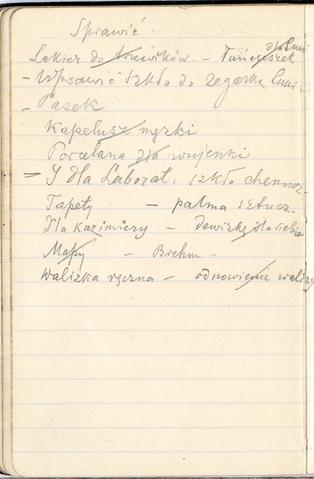 Sprawić
Lakier do trzewików. – Łańcuszek dla Luni
– Wprawić szkło do zegarka Luni
– Pasek
Kapelusz męzki
dla wujenki
= Y dla Laborat. szkło chemicz.
Tapety – palma sztucz.
Dla Kazimierzy – dewizkę dla siebie
Mapy – Brehm –
Walizka ręczna – odnowienie waliz